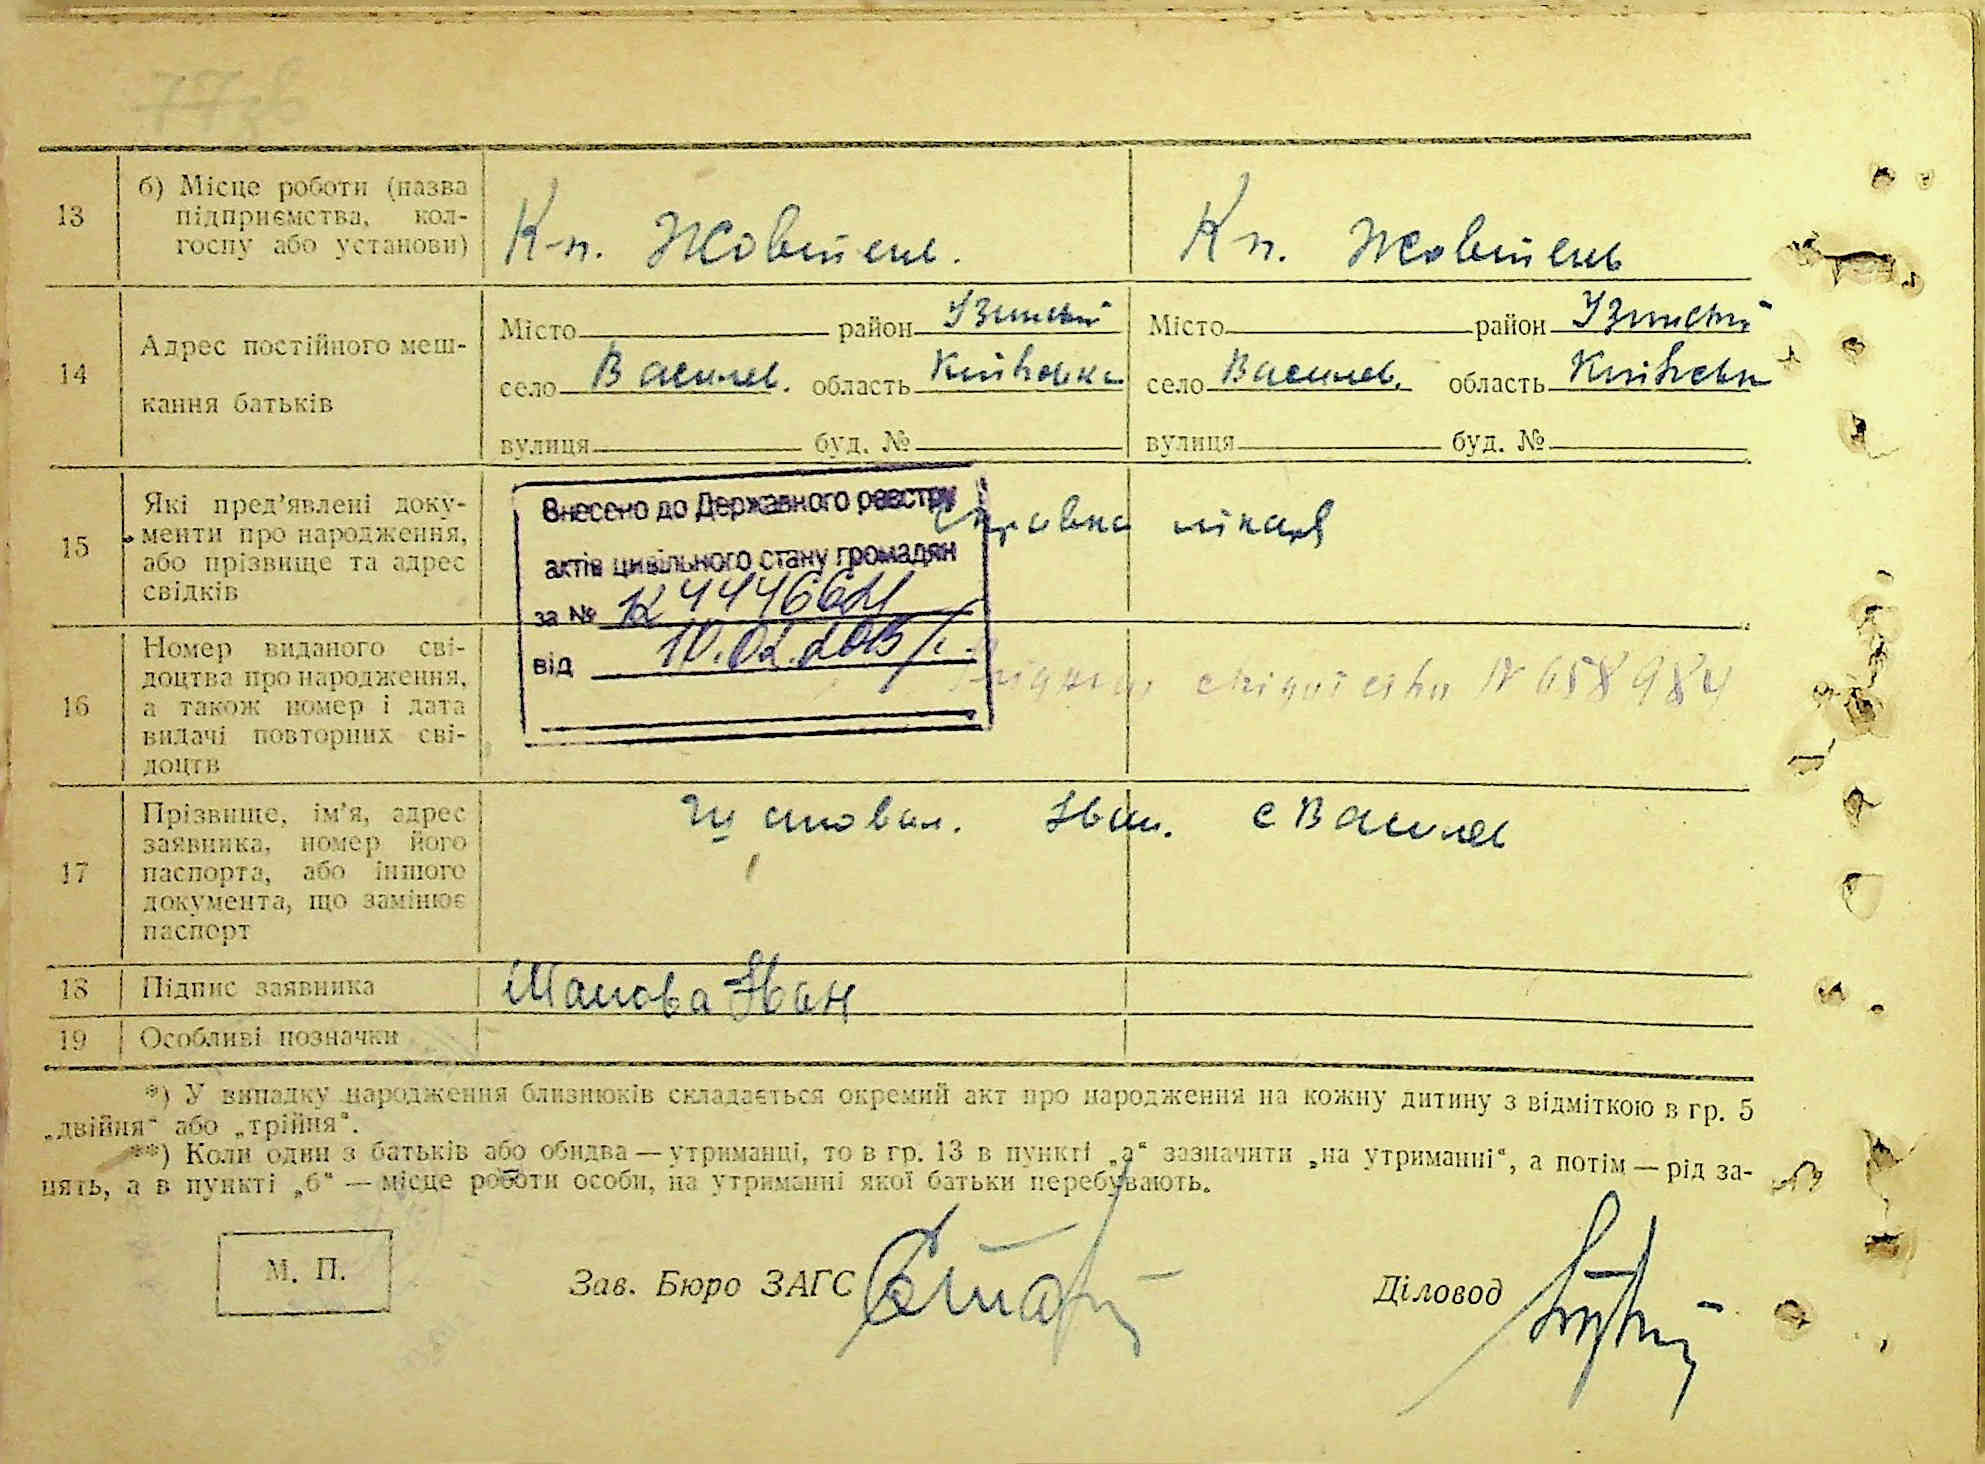 77зв
13
б) Місце роботи (назва
підприємства, кол-
госпу або установи)
К-п. Жовтень.
Кп. Жовтень
14
Адрес постійного меш-
кання батьків
Місто район Узинський
село Василев. область Київська
вулиця буд. №
Місто район Узинський
село Василев. область Київськ
вулиця буд. №
15
Які пред’явлені доку-
менти про народження,
або прізвище та адрес
свідків
Справка лікаря
Внесено до Державного реєстру
актів цивільного стану громадян
за №
від 10.02.2015 р.
16
Номер виданого сві-
доцтва про народження,
а також номер і дата
видачі повторних сві-
доцтв
свідоцтва № 658984
17
Прізвище, ім’я, адрес
заявника, номер його
паспорта, або іншого
документа, що замінює
паспорт
Іван. с Василев
18
Підпис заявника
Шапова Іван
19
Особливі позначки
*) У випадку народження близнюків складається окремий акт про народження на кожну дитину з відміткою в гр. 5
„двійня“ або „трійня“.
**) Коли один з батьків або обидва — утриманці, то в гр. 13 в пункті „а“ зазначити „на утриманні“, а потім — рід за-
нять, а в пункті „б“ — місце роботи особи, на утриманні якої батьки перебувають.
М. П.
Зав. Бюро ЗАГС
Діловод